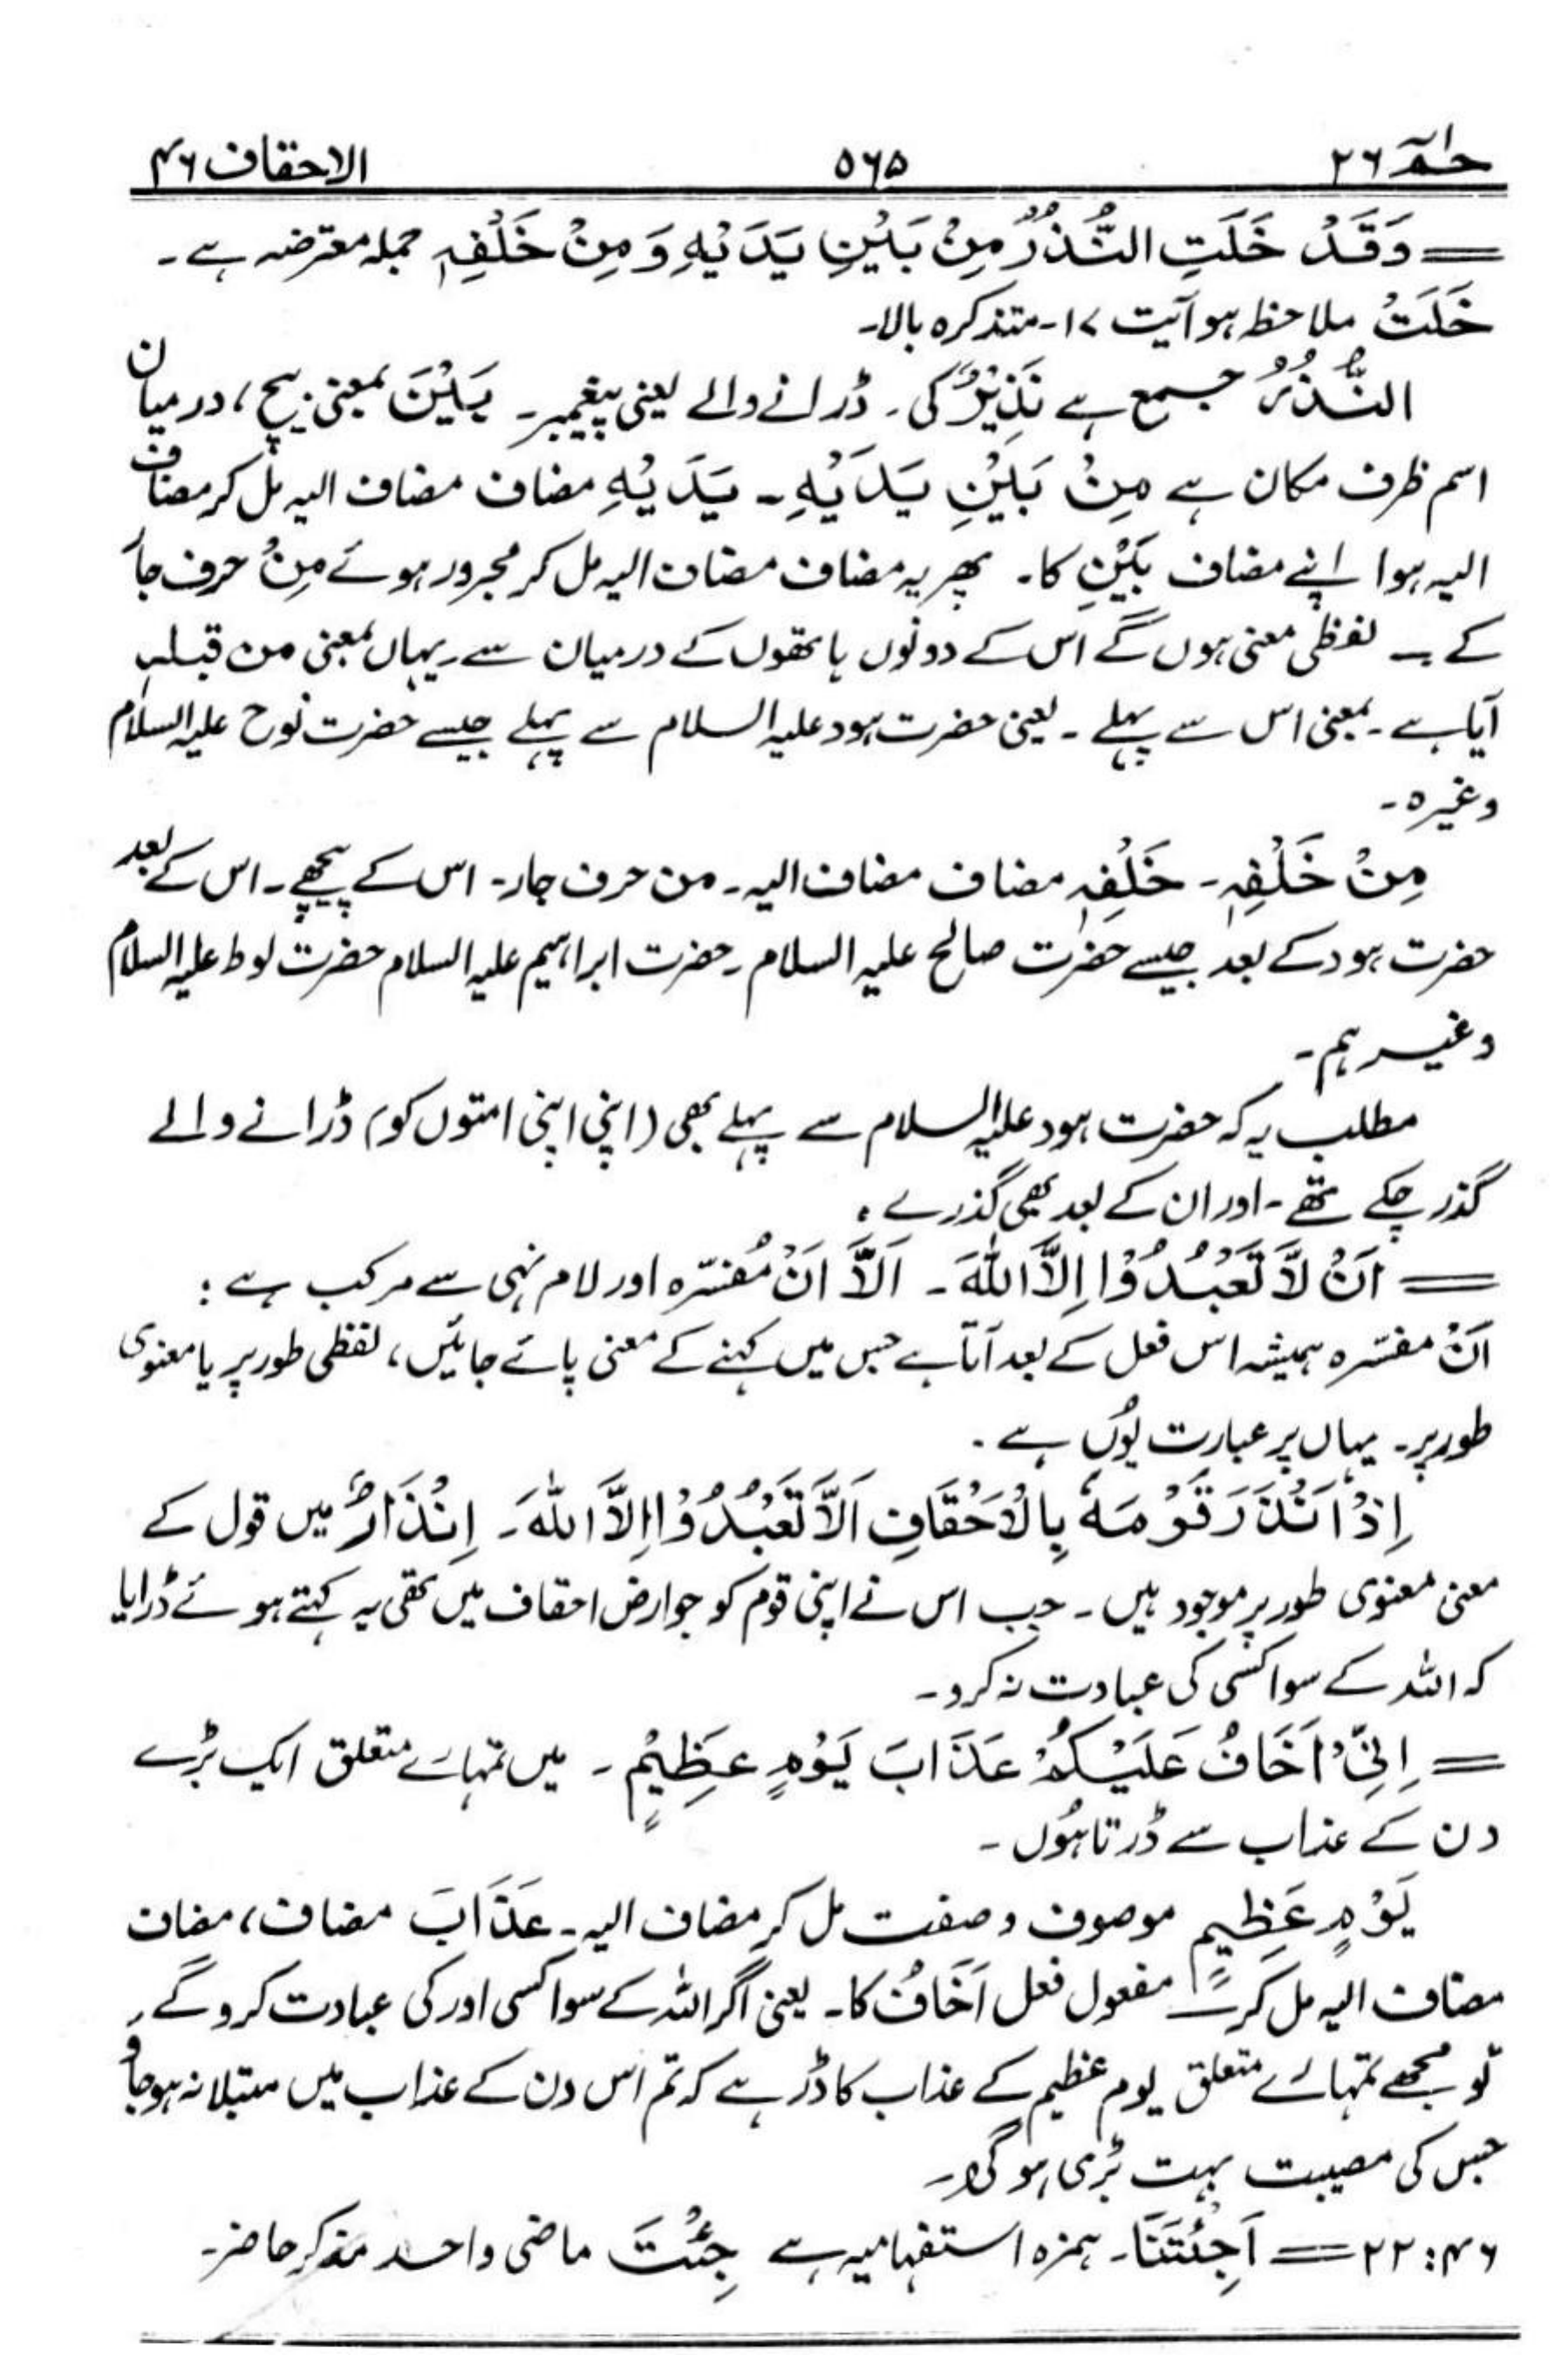 حٰمٓ ۲۶ ۵۶۵ الاحقاف ۴۶
= وَقَدْ خَلَتِ النُّذُرُ مِنْ بَيْنِ يَدَيْهِ وَ مِنْ خَلْفِهٖ جملہ معترضہ ہے۔
خَلَتْ ملاحظہ ہو آیت ۱۷۔ متذکرہ بالا۔
النُّذُرُ جمع ہے نَذِيْرٌ کی۔ ڈرانے والے یعنی پیغمبر۔ بَيْنَ بمعنی بیچ، درمیان
اسم ظرف مکان ہے مِنْ بَيْنِ يَدَيْهِ۔ يَدَيْهِ مضاف مضاف الیہ مل کر مضاف
الیہ ہوا اپنے مضاف بَيْنِ کا۔ پھر یہ مضاف مضاف الیہ مل کر مجرور ہوئے مِنْ حرف جار
کے۔ لفظی معنی ہوں گے اس کے دونوں ہاتھوں کے درمیان سے۔ یہاں بمعنی من قبلہٖ
آیا ہے۔ بمعنی اس سے پہلے۔ یعنی حضرت ہود علیہ السلام سے پہلے جیسے حضرت نوح علیہ السلام
وغیرہ۔
مِنْ خَلْفِهٖ۔ خَلْفِهٖ مضاف مضاف الیہ۔ من حرف جار۔ اس کے پیچھے۔ اس کے بعد
حضرت ہود کے بعد جیسے حضرت صالح علیہ السلام۔ حضرت ابراہیم علیہ السلام حضرت لوط علیہ السلام
وغیرہم۔
مطلب یہ کہ حضرت ہود علیہ السلام سے پہلے بھی (اپنی اپنی امتوں کو) ڈرانے والے
گذر چکے تھے۔ اور ان کے بعد بھی گذرے۔
= اَنْ لَّا تَعْبُدُوْا اِلَّا اللّٰهَ۔ اَلَّا اَنْ مُفسّرہ اور لام نہی سے مرکب ہے:
اَنْ مفسّرہ ہمیشہ اس فعل کے بعد آتا ہے جس میں کہنے کے معنی پائے جائیں، لفظی طور پر یا معنوی
طور پر۔ یہاں پر عبارت یُوں ہے۔
اِذْ اَنْذَرَ قَوْمَهٗ بِالْاَحْقَافِ اَلَّا تَعْبُدُوْا اِلَّا اللّٰهَ۔ اِنْذَارٌ میں قول کے
معنی معنوی طور پر موجود ہیں۔ جب اس نے اپنی قوم کو جو ارض احقاف میں تھی یہ کہتے ہوئے ڈرایا
کہ اللہ کے سوا کسی کی عبادت نہ کرو۔
= اِنِّيْ اَخَافُ عَلَيْكُمْ عَذَابَ يَوْمٍ عَظِيْمٍ۔ میں تمہارے متعلق ایک بڑے
دن کے عذاب سے ڈرتا ہُوں۔
يَوْمٍ عَظِيْمٍ موصوف و صفت مل کر مضاف الیہ۔ عَذَابَ مضاف، مضاف
مضاف الیہ مل کر مفعول فعل اَخَافُ کا۔ یعنی اگر اللہ کے سوا کسی اور کی عبادت کرو گے،
تو مجھے تمہارے متعلق یوم عظیم کے عذاب کا ڈر ہے کہ تم اس دن کے عذاب میں مبتلا نہ ہو جاؤ
جس کی مصیبت بہت بڑی ہو گی۔
۴۶:۲۲ = اَجِئْتَنَا۔ ہمزہ استفہامیہ ہے جِئْتَ ماضی واحد مذکر حاضر۔